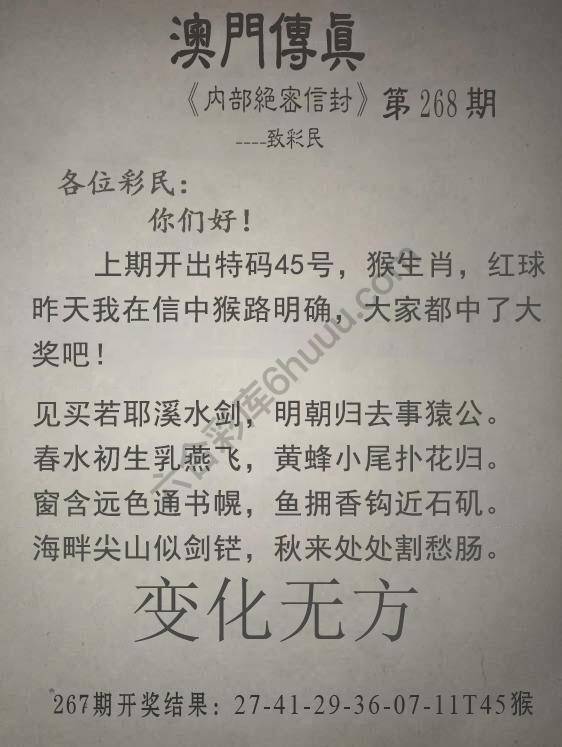 澳門傳真
《内部絕密信封》第268期
----致彩民
各位彩民：
你们好！
上期开出特码45号，猴生肖，红球
昨天我在信中猴路明确，大家都中了大
奖吧！
见买若耶溪水剑，明朝归去事猿公。
春水初生乳燕飞，黄蜂小尾扑花归。
窗含远色通书幌，鱼拥香钩近石矶。
海畔尖山似剑铓，秋来处处割愁肠。
变化无方
267期开奖结果：27-41-29-36-07-11T45猴
六合彩库6huuu.com